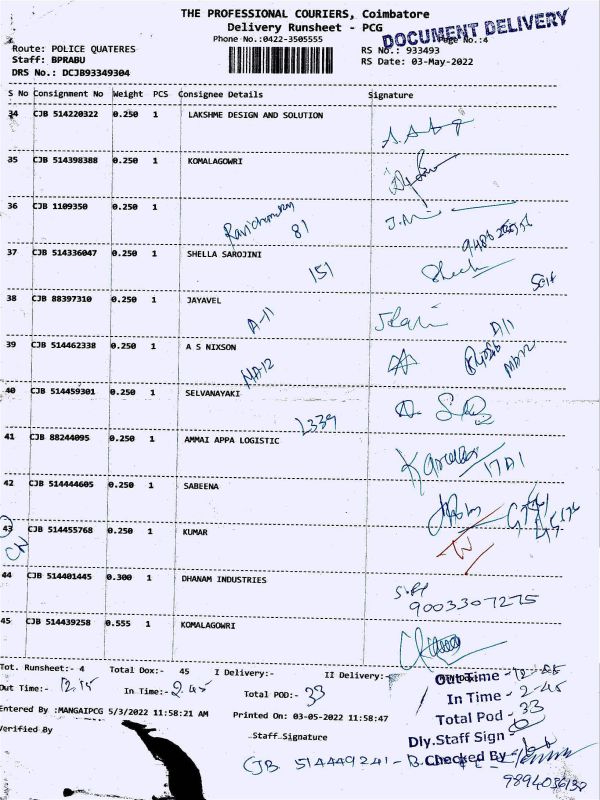 THE PROFESSIONAL COURIERS, Coimbatore
Delivery Runsheet - PCG
DOCUMENT DELIVERY
Phone No.:0422-3505555
Page No.:4
Route: POLICE QUATERES
RS No.: 933493
Staff: BPRABU
RS Date: 03-May-2022
DRS No.: DCJB93349304
S No Consignment No Weight PCS Consignee Details Signature
34 CJB 514220322 0.250 1 LAKSHME DESIGN AND SOLUTION
35 CJB 514398388 0.250 1 KOMALAGOWRI
36 CJB 1109350 0.250 1
Ravichandran
81
37 CJB 514336047 0.250 1 SHELLA SAROJINI
151
Self
38 CJB 88397310 0.250 1 JAYAVEL
A-11
D/1
39 CJB 514462338 0.250 1 A S NIXSON
MD12
40 CJB 514459301 0.250 1 SELVANAYAKI
L339
41 CJB 88244095 0.250 1 AMMAI APPA LOGISTIC
42 CJB 514444605 0.250 1 SABEENA
43 CJB 514455768 0.250 1 KUMAR
44 CJB 514401445 0.300 1 DHANAM INDUSTRIES
9003307275
45 CJB 514439258 0.555 1 KOMALAGOWRI
Tot. Runsheet:- 4 Total Dox:- 45 I Delivery:- II Delivery:-
Out Time:- 12.15 In Time:- 2.45 Total POD:- 33
Entered By :MANGAIPCG 5/3/2022 11:58:21 AM Printed On: 03-05-2022 11:58:47
Verified By
Staff Signature
Out Time -
In Time - 2-45
Total Pod - 33
Dly.Staff Sign
Checked By
CJB 514449241 -
9894036132